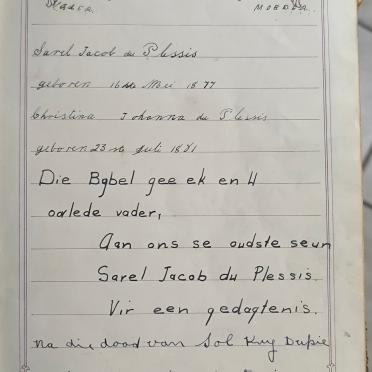 Vader. MOEDER.
Sarel Jacob du Plessis
geboren 16de Mei 1877
Christina Johanna du Plessis
geboren 23ste Juli 1881
Die Bybel gee ek en U
oorlede vader,
Aan ons se oudste seun
Sarel Jacob du Plessis.
Vir een gedagtenis.
na die dood van Sol